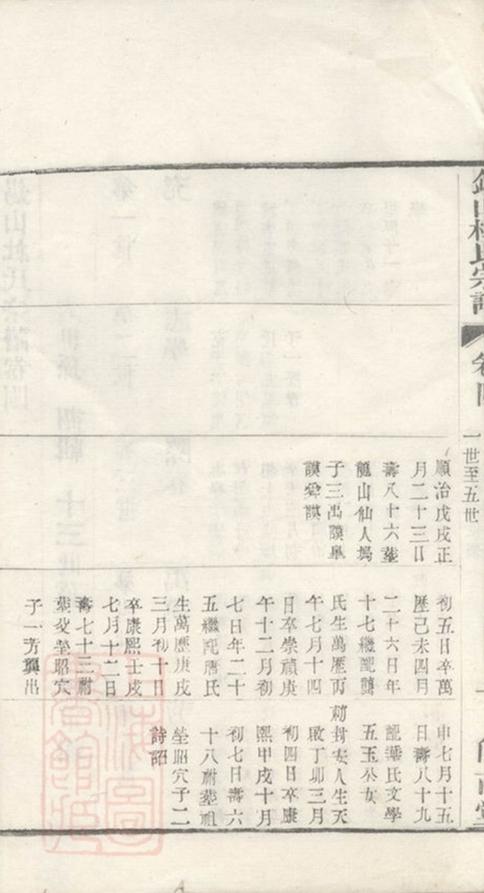 錫山杜氏宗譜
卷四
一世至五世
順治戊戌正
月二十三日
壽八十六葬
龍山仙人塢
子三禹謨臯
謨舜謨
初五日卒萬
歷己未四月
二十六日年
十七繼配龔
氏生萬歷丙
午七月十四
日卒崇禎庚
午十二月初
七日年二十
五繼配唐氏
生萬歷庚戌
三月初十日
卒康熙壬戌
七月十二日
壽七十三祔
葬㳟塋昭穴
子一芳龔出
申七月十五
日壽八十九
配葉氏文學
五玉公女
勅封安人生天
啟丁卯三月
初四日卒康
熙甲戌十月
初七日壽六
十八祔葬祖
塋昭穴子二
詩詔